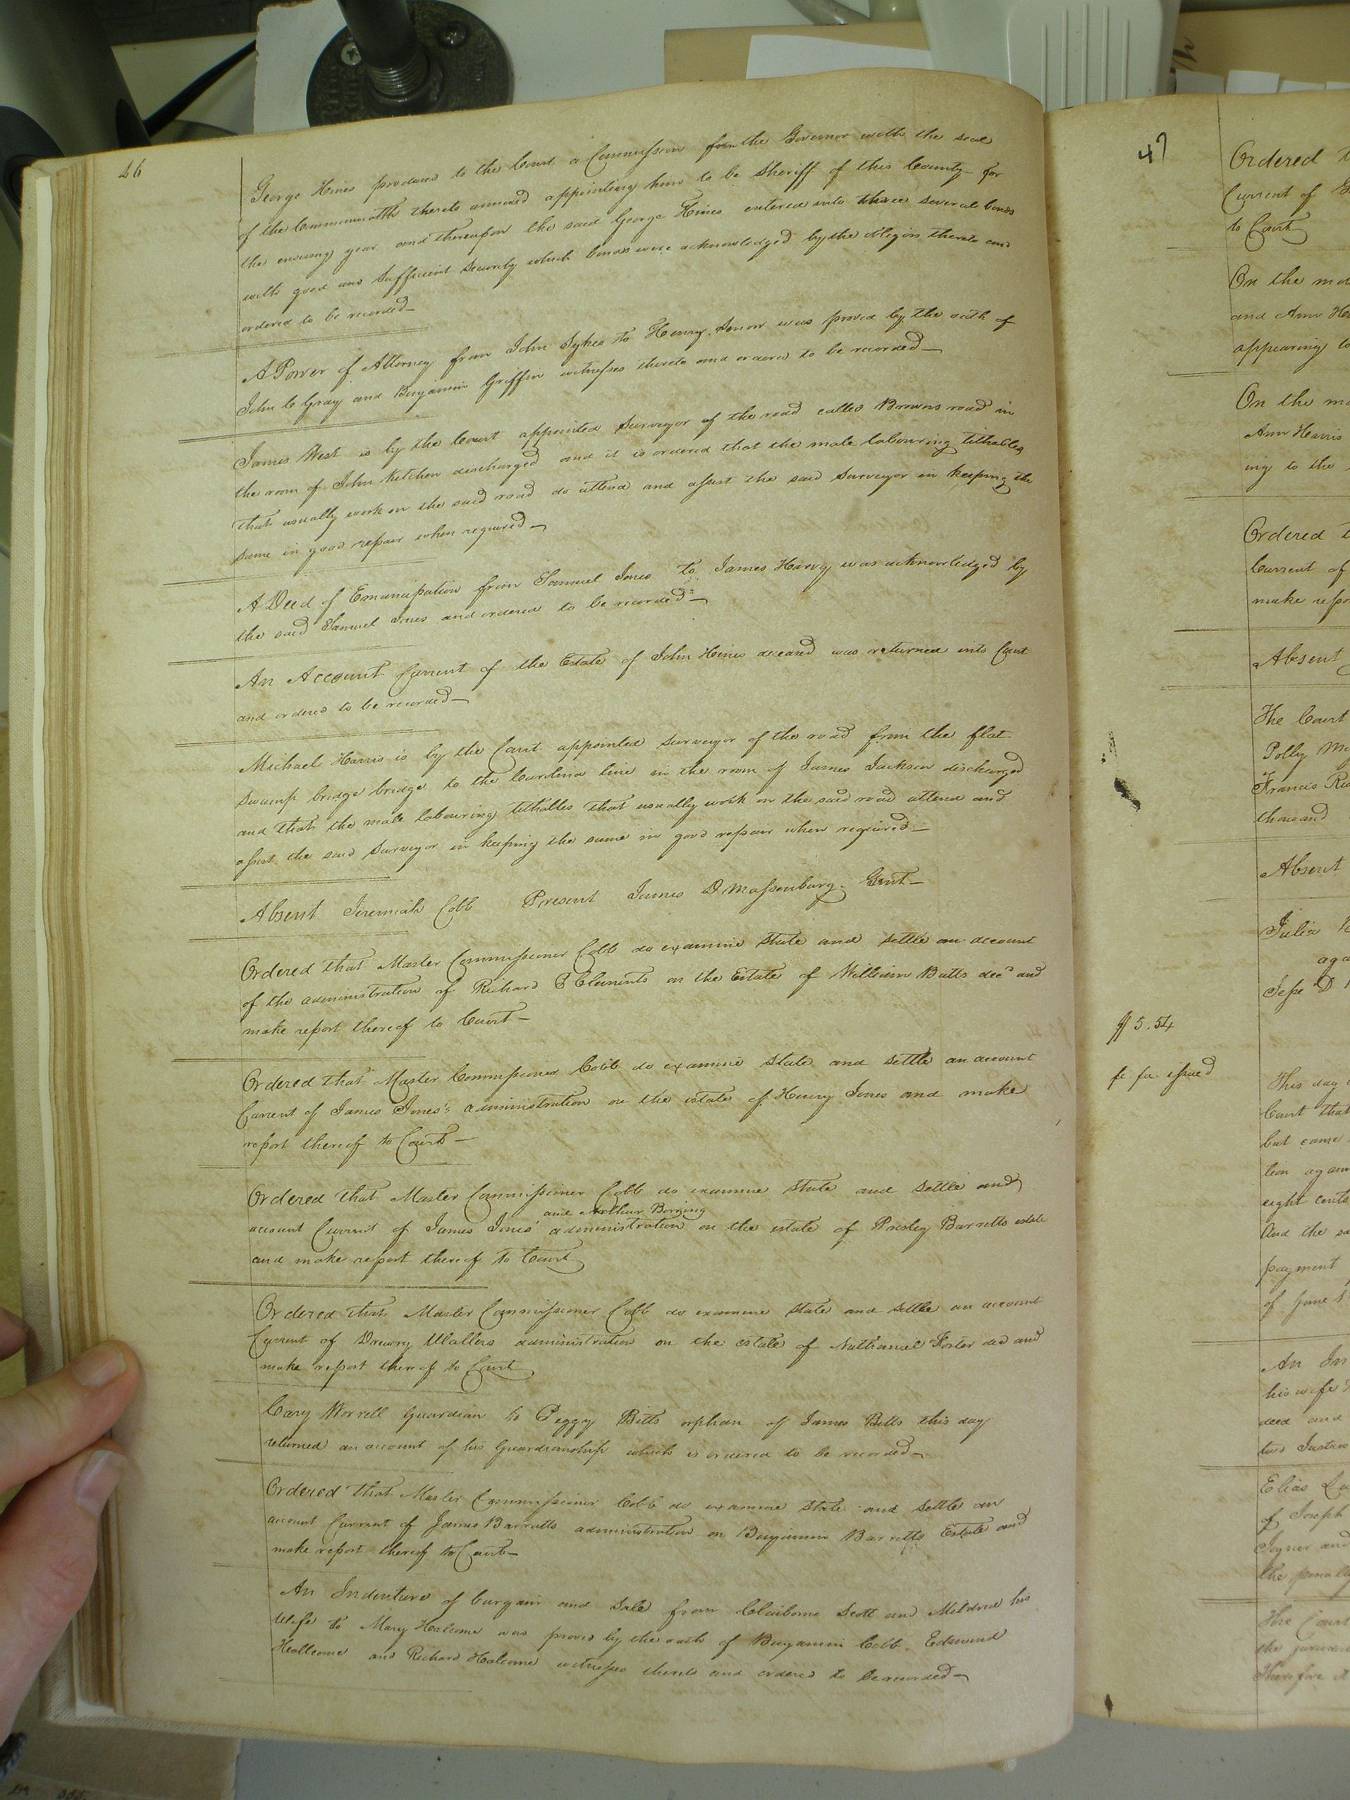 46
George Hines produced to the Court a Commission from the Governor with the seal
of the Commonwealth thereto annexed appointing him to be Sheriff of this County for
the ensuing year and thereupon the said George Hines entered into three several bonds
with good and sufficient security which bonds were acknowledged by the obligors thereto and
ordered to be recorded
A Power of Attorney from John Sykes to Henry was proved by the oath of
John C Gray and Benjamin Griffin witnesses thereto and ordered to be recorded
James West is by the Court appointed Surveyor of the road called Browns road in
the room of John Kitchen discharged and it is ordered that the male labouring tithables
that usually work on the said road do attend and assist the said Surveyor in keeping the
same in good repair when required
A Deed of Emancipation from Samuel Jones to James Harvy was acknowledged by
the said Samuel Jones and ordered to be recorded
An Account Current of the Estate of John Hines deceasd was returned into Court
and ordered to be recorded
Michael Harris is by the Court appointed Surveyor of the road from the flat
swamp bridge bridge to the Carolina line in the room of James Jackson discharged
and that the male labouring tithables that usually work on the said road attend and
assist the said Surveyor in keeping the same in good repair when required
Absent Jeremiah Cobb Present James D Massenburg Gent
Ordered that Master Commissioner Cobb do examine state and settle an account
of the administration of Richard Clements on the Estate of William Butts decd and
make report thereof to Court
Ordered that Master Commissioner Cobb do examine state and settle an account
Current of James Jones's administration on the estate of Henry Jones and make
report thereof to Court
Ordered that Master Commissioner Cobb do examine state and settle and
and Arthur
account Current of James Jones' administration on the estate of Presley Barretts estate
and make report thereof to Court
Ordered that Master Commissioner Cobb do examine state and settle an account
Current of Drewry Wallers administration on the estate of Nathaniel Foster decd and
make report thereof to Court
Cary Worrell Guardian to Peggy Betts orphan of James Betts this day
returned an account of his Guardianship which is ordered to be recorded
Ordered that Master Commissioner Cobb do examine state and settle an
account Current of James Barretts administration on Benjamin Barretts Estate and
make report thereof to Court
An Indenture of bargain and sale from Claiborne Scott and Mildred his
Wife to Mary Holcome was proved by the oath of Benjamin Cobb, Edmund
Holcome and Richard Holcome witnesses thereto and ordered to be recorded
47
Ordered
Current of
to Court
On the
and Ann
appearing to
On the
Ann Harris
ing to the
Ordered
Current of
make
Absent
The Court
Polly
Francis
thousand
Absent
Julia
Jesse D
$ 5.54
fi fa issued
This day
Court that
but came
eight cents
And the
payment
of June
An
his wife
deed and
two
Elias
of Joseph
Joyner and
the
The Court
the
Therefore it